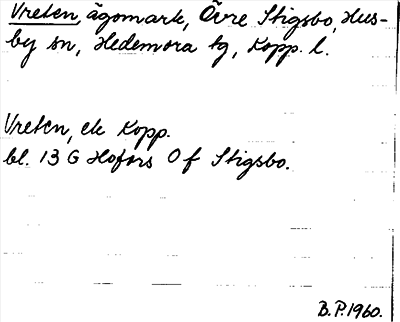 Vreten, ägomark, Övre Stigsbo, Hus-
by sn, Hedemora tg, Kopp. l.
Vreten, ek Kopp.
bl. 13 G Hofors 0 f Stigsbo.
B.P. 1960.